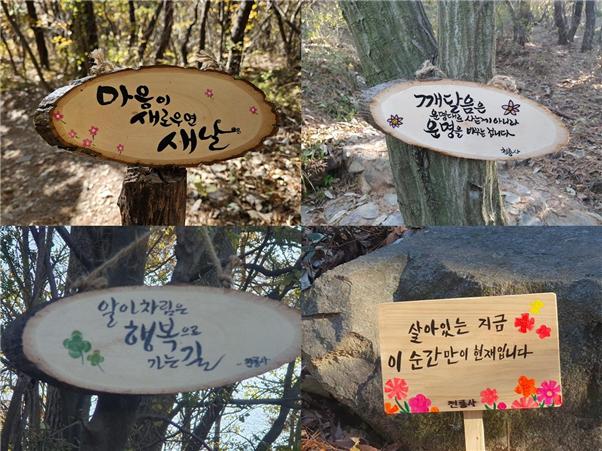 마음이
새로우면
새날이
깨달음은
운명대로 사는게 아니라
운명을 바꾸는 겁니다
천룡사
알아차림은
행복으로
가는 길
천룡사
살아있는 지금
이 순간만이 현재입니다
천룡사